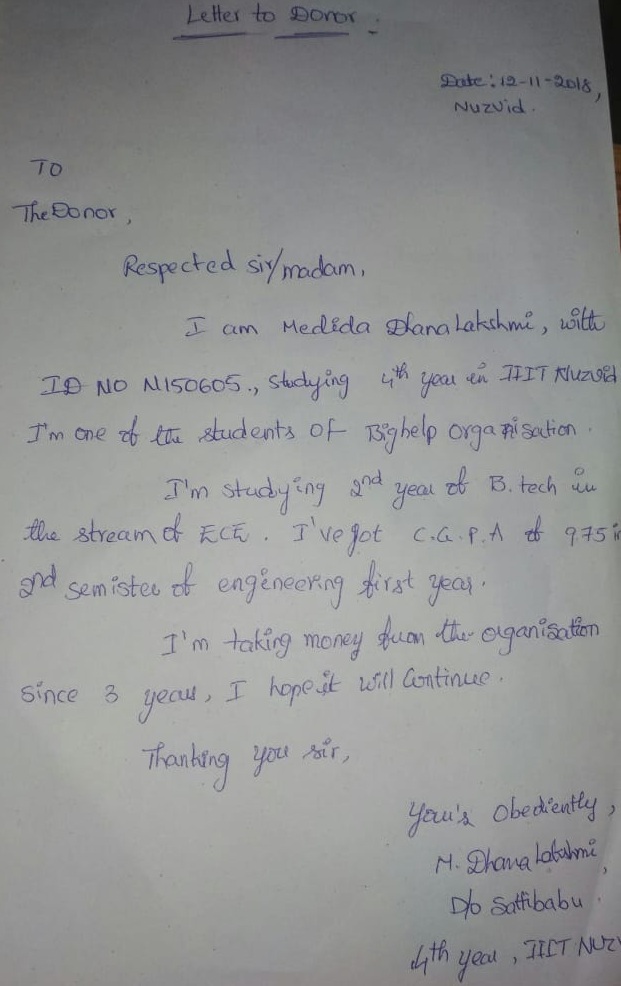 Letter to Donor :
Date: 12-11-2018,
Nuzvid.
To
The Donor,
Respected sir/madam,
I am Medida DhanaLakshmi, with
ID NO N150605., studying 4th year in IIIT Nuzvid
I'm one of the students of Bighelp organisation.
I'm studying 2nd year of B.tech in
the stream of ECE. I've got C.G.P.A of 9.75 in
2nd semister of engineering first year.
I'm taking money from the organisation
since 3 years, I hope it will Continue.
Thanking you sir,
Your's Obediently,
M. Dhana Lakshmi,
D/o Sattibabu.
4th year, IIIT NUZV